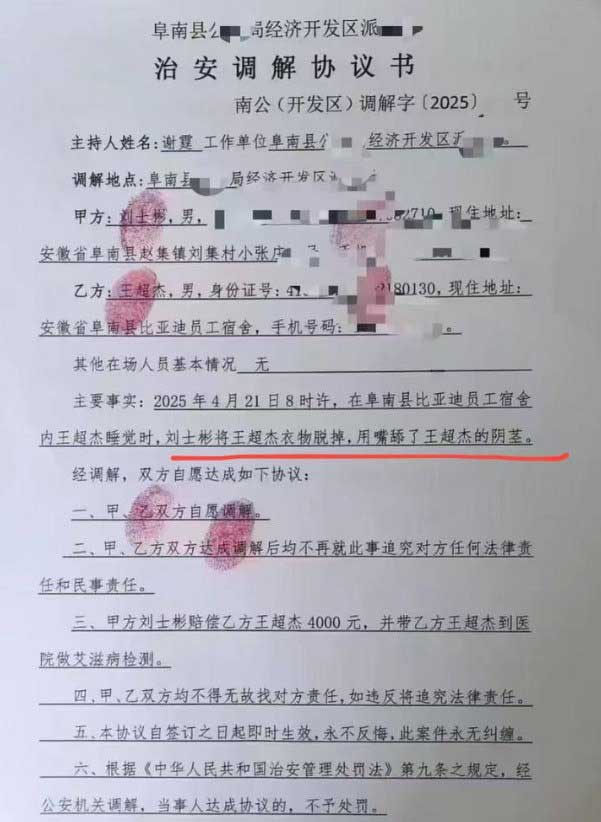 阜南县公 局经济开发区派
治安调解协议书
南公(开发区)调解字〔2025〕 号
主持人姓名:谢霆 工作单位阜南县公 经济开发区派 。
调解地点:阜南县 局经济开发区
甲方:刘士彬,男, 82710,现住地址:
安徽省阜南县赵集镇刘集村小张庄
乙方:王超杰,男,身份证号:41 2180130,现住地址:
安徽省阜南县比亚迪员工宿舍,手机号码: 。
其他在场人员基本情况 无
主要事实:2025年4月21日8时许,在阜南县比亚迪员工宿舍
内王超杰睡觉时,刘士彬将王超杰衣物脱掉,用嘴舔了王超杰的阴茎。
经调解,双方自愿达成如下协议:
一、甲、乙双方自愿调解。
二、甲、乙方双方达成调解后均不再就此事追究对方任何法律责
任和民事责任。
三、甲方刘士彬赔偿乙方王超杰4000元,并带乙方王超杰到医
院做艾滋病检测。
四、甲、乙双方均不得无故找对方责任,如违反将追究法律责任。
五、本协议自签订之日起即时生效,永不反悔,此案件永无纠缠。
六、根据《中华人民共和国治安管理处罚法》第九条之规定,经
公安机关调解,当事人达成协议的,不予处罚。